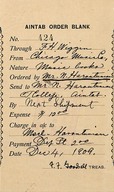 AINTAB ORDER BLANK
No. 424
Through F. H. Wiggin
From Chicago Music Co.
Name Music Books
Ordered by Mr. N. Harootunian
Send to Mr. N. Harootunian
College, Aintab.
By Next Shipment
Expense $
Charge in a/c to
Harootunian
Payment
Date Dec. 14, 1908.
TREAS.